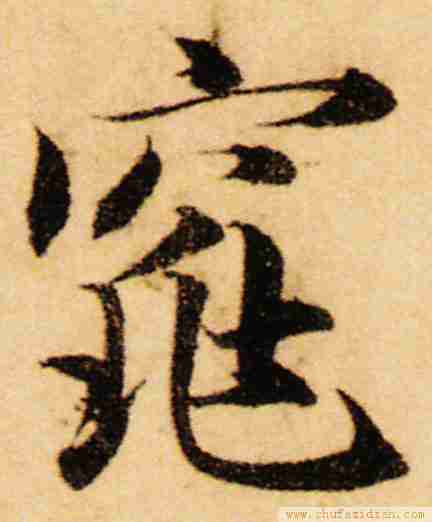 窕
www.shufazidian.com